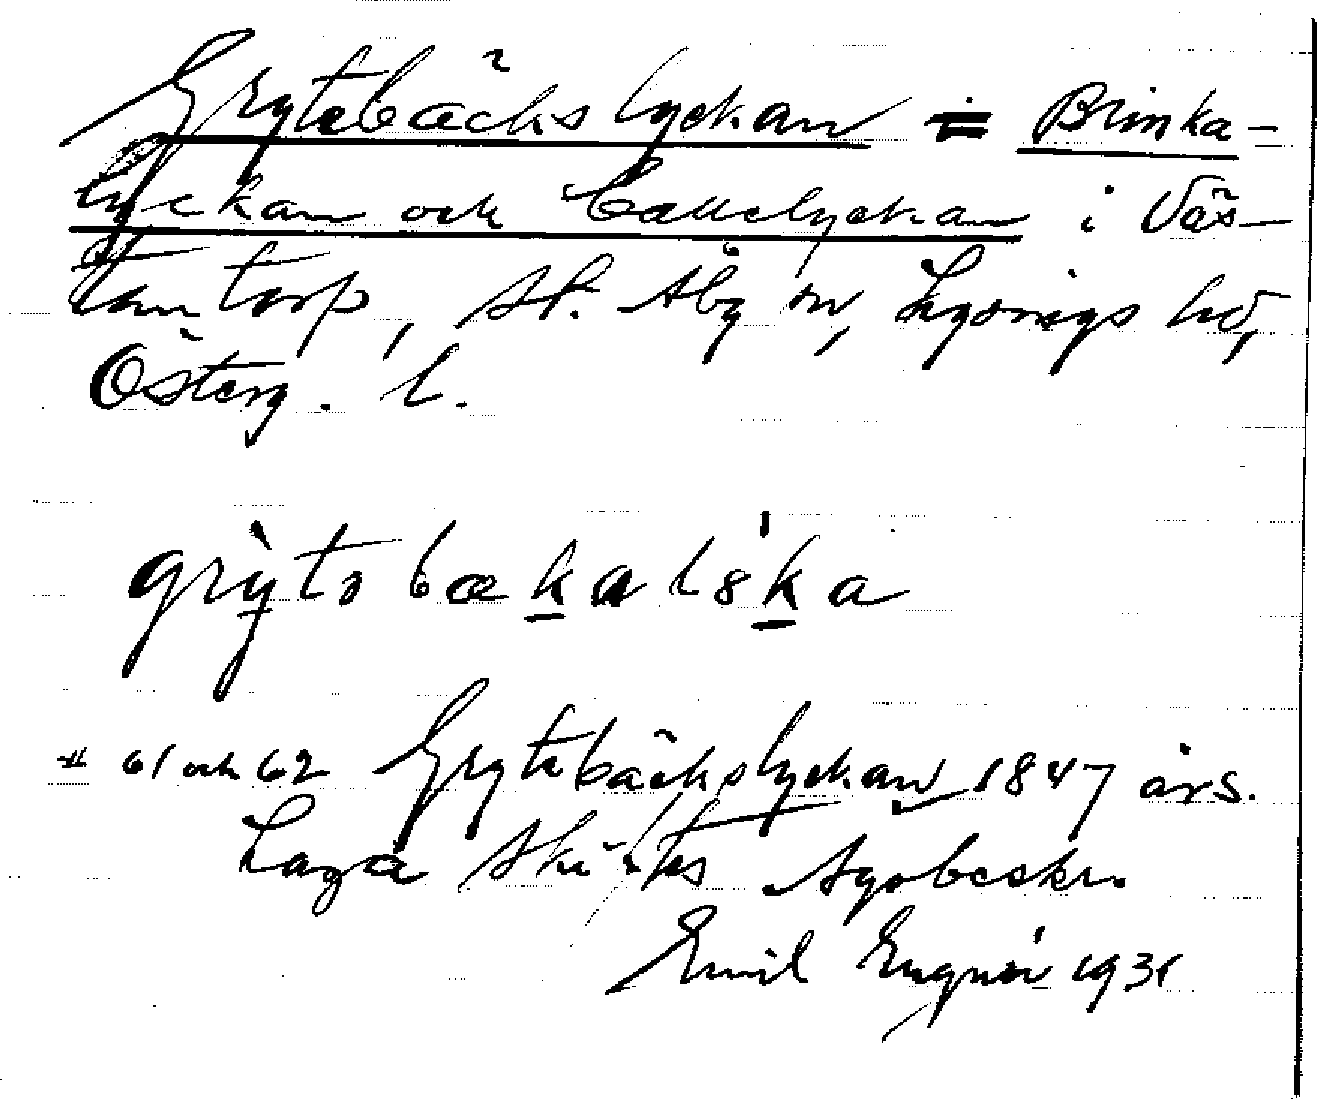 Grytebäckslyckan = Brinka-
lyckan och Callelyckan i Väs-
tantorp, St. Åby sn, Lysings hd,
Österg. l.
grỳtəbækalẙka
# 61 och 62 Grytebäckslyckan 1847 års.
Laga Skiftes Ägobeskr.
Emil Engnér 1931